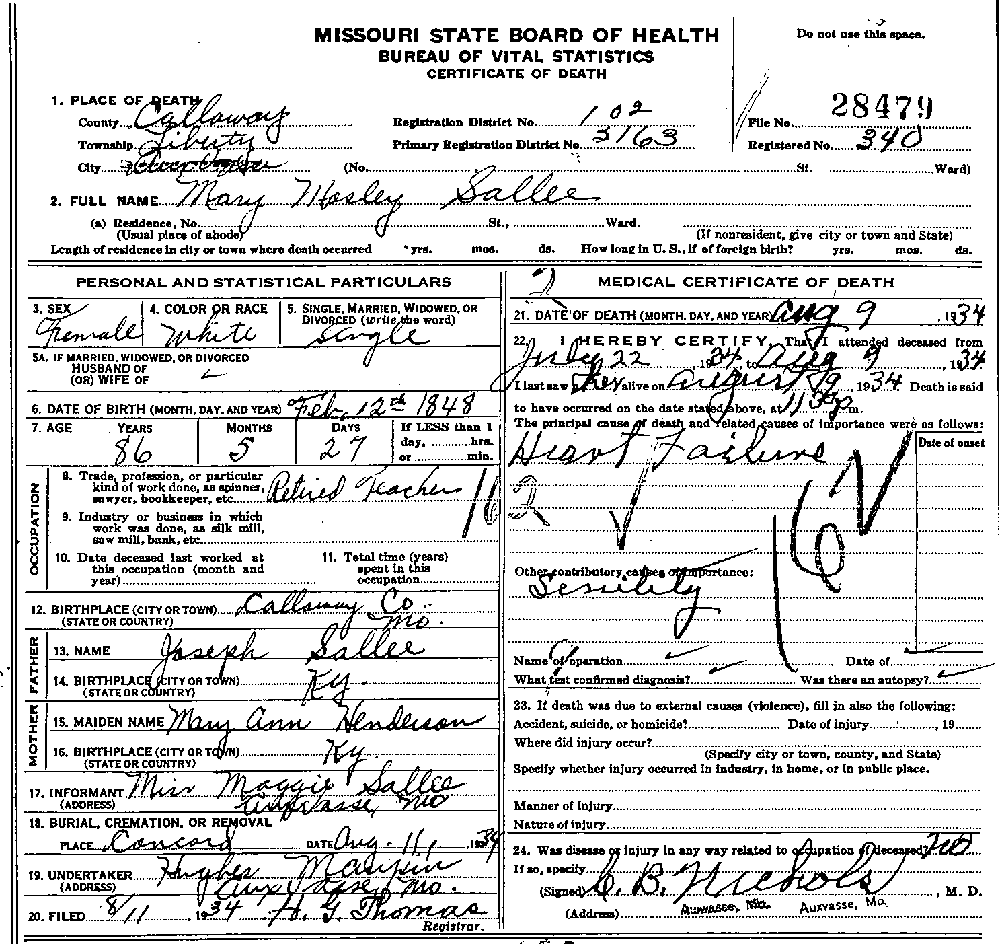 MISSOURI STATE BOARD OF HEALTH
BUREAU OF VITAL STATISTICS
CERTIFICATE OF DEATH
Do not use this space.
1. PLACE OF DEATH
County Callaway
Township Liberty
City
(No. St. Ward)
Registration District No. 102
Primary Registration District No. 3163
File No. 28479
Registered No. 340
2. FULL NAME Mary Mosley Sallee
(a) Residence, No. St., Ward.
(Usual place of abode) (If nonresident, give city or town and State)
Length of residence in city or town where death occurred yrs. mos. ds. How long in U. S., if of foreign birth? yrs. mos. ds.
PERSONAL AND STATISTICAL PARTICULARS
3. SEX Female
4. COLOR OR RACE White
5. SINGLE, MARRIED, WIDOWED, OR DIVORCED (write the word) Single
5A. IF MARRIED, WIDOWED, OR DIVORCED
HUSBAND OF
(OR) WIFE OF
6. DATE OF BIRTH (MONTH, DAY, AND YEAR) Feb. 12th 1848
7. AGE YEARS MONTHS DAYS If LESS than 1
86 5 27 day, hrs.
or min.
OCCUPATION
8. Trade, profession, or particular
kind of work done, as spinner, Retired Teacher
sawyer, bookkeeper, etc.
9. Industry or business in which
work was done, as silk mill,
saw mill, bank, etc.
10. Date deceased last worked at
this occupation (month and
year)
11. Total time (years)
spent in this
occupation
12. BIRTHPLACE (CITY OR TOWN) Callaway Co.
(STATE OR COUNTRY) Mo.
FATHER
13. NAME Joseph Sallee
14. BIRTHPLACE (CITY OR TOWN) Ky.
(STATE OR COUNTRY)
MOTHER
15. MAIDEN NAME Mary Ann Henderson
16. BIRTHPLACE (CITY OR TOWN) Ky.
(STATE OR COUNTRY)
17. INFORMANT Miss Maggie Sallee
(ADDRESS) Auxvasse, Mo
18. BURIAL, CREMATION, OR REMOVAL
PLACE Concord DATE Aug. 11, 1934
19. UNDERTAKER Hughes Maupin
(ADDRESS) Auxvasse, Mo.
20. FILED 8/11 1934 H. G. Thomas
Registrar.
MEDICAL CERTIFICATE OF DEATH
2
21. DATE OF DEATH (MONTH, DAY, AND YEAR) Aug 9, 1934
22. I HEREBY CERTIFY, That I attended deceased from
July 22 1934 to Aug 9, 1934
I last saw her alive on August 9, 1934 Death is said
to have occurred on the date stated above, at m.
The principal cause of death and related causes of importance were as follows:
Date of onset
Heart Failure
2
162
Other contributory causes of importance:
Senility
Name of operation Date of
What test confirmed diagnosis? Was there an autopsy?
23. If death was due to external causes (violence), fill in also the following:
Accident, suicide, or homicide? Date of injury , 19
Where did injury occur?
(Specify city or town, county, and State)
Specify whether injury occurred in industry, in home, or in public place.
Manner of injury
Nature of injury
24. Was disease or injury in any way related to occupation of deceased? No
If so, specify
(Signed) C. B. Nichols, M. D.
(Address) Auxvasse, Mo. Auxvasse, Mo.